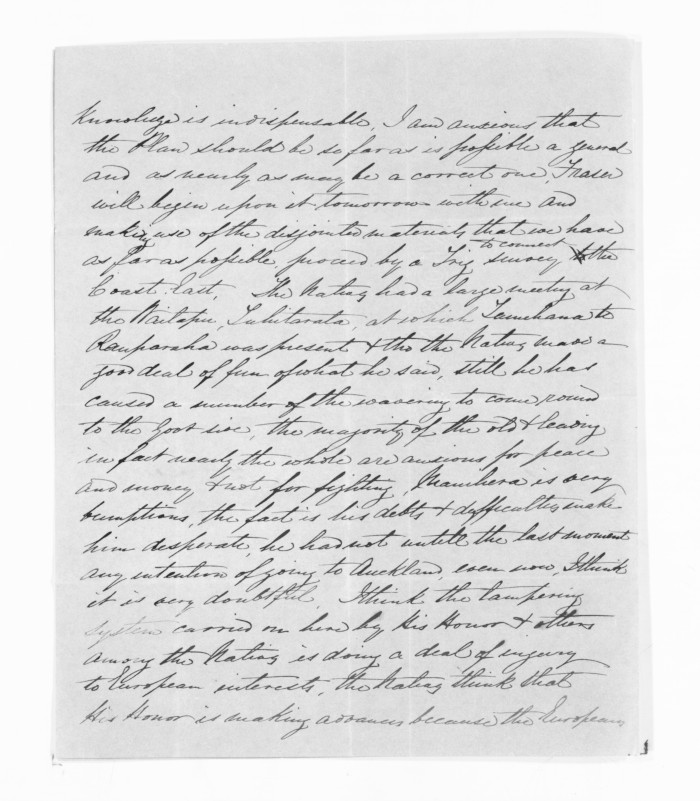 Knowledge is indispensable, I am anxious that
the Plan should be so far as is possible a general
and as nearly as may be a correct one, Fraser
will begin upon it tomorrow with me and
making use of the disjointed materials that we have
as far as possible, proceed by a Trig survey to connect the
Coast East. The Natives had a large meeting at
the Waitapu, Tuhitarata, at which Tamihana te
Rauparaha was present & tho the Natives made a
good deal of fun of what he said, still he has
caused a number of the wavering to come round
to the Govt side, the majority of the old & leading
in fact nearly the whole are anxious for peace
and money & not for fighting, Manihera is very
bumptious, the fact is his debts & difficulties make
him desperate, he had not untill the last moment
any intention of going to Auckland, even now, I think
it is very doubtful. I think the tampering
system carried on here by His Honor & others
among the Natives is doing a deal of injury
to European interests, the Natives think that
His Honor is making advances because the Europeans